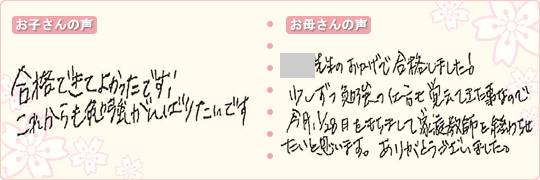 お子さんの声
合格できてよかったです!
これからも勉強がんばりたいです
お母さんの声
先生のおかげで合格しました!
少しずつ勉強の仕方も覚えてきた事なので
今月、1/28日をもちまして家庭教師を終わらせ
たいと思います。ありがとうございました。